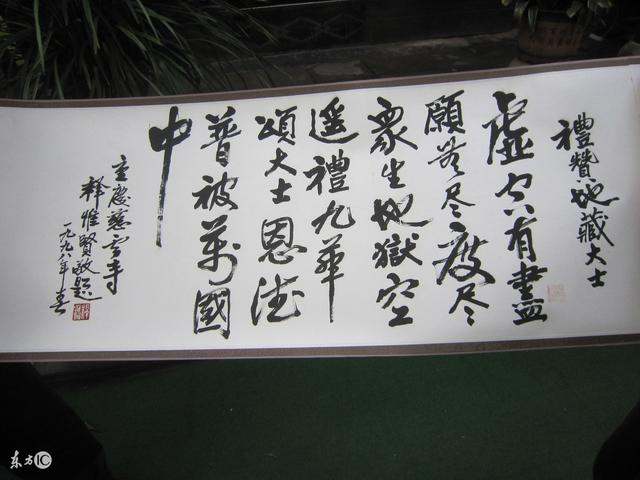 禮贊地藏大士
虛空有盡
願無尽度尽
眾生地獄空
遥禮九華
頌大士恩德
普被萬國
中
重慶慈雲寺
释惟賢敬題
一九九八年春
东方IC